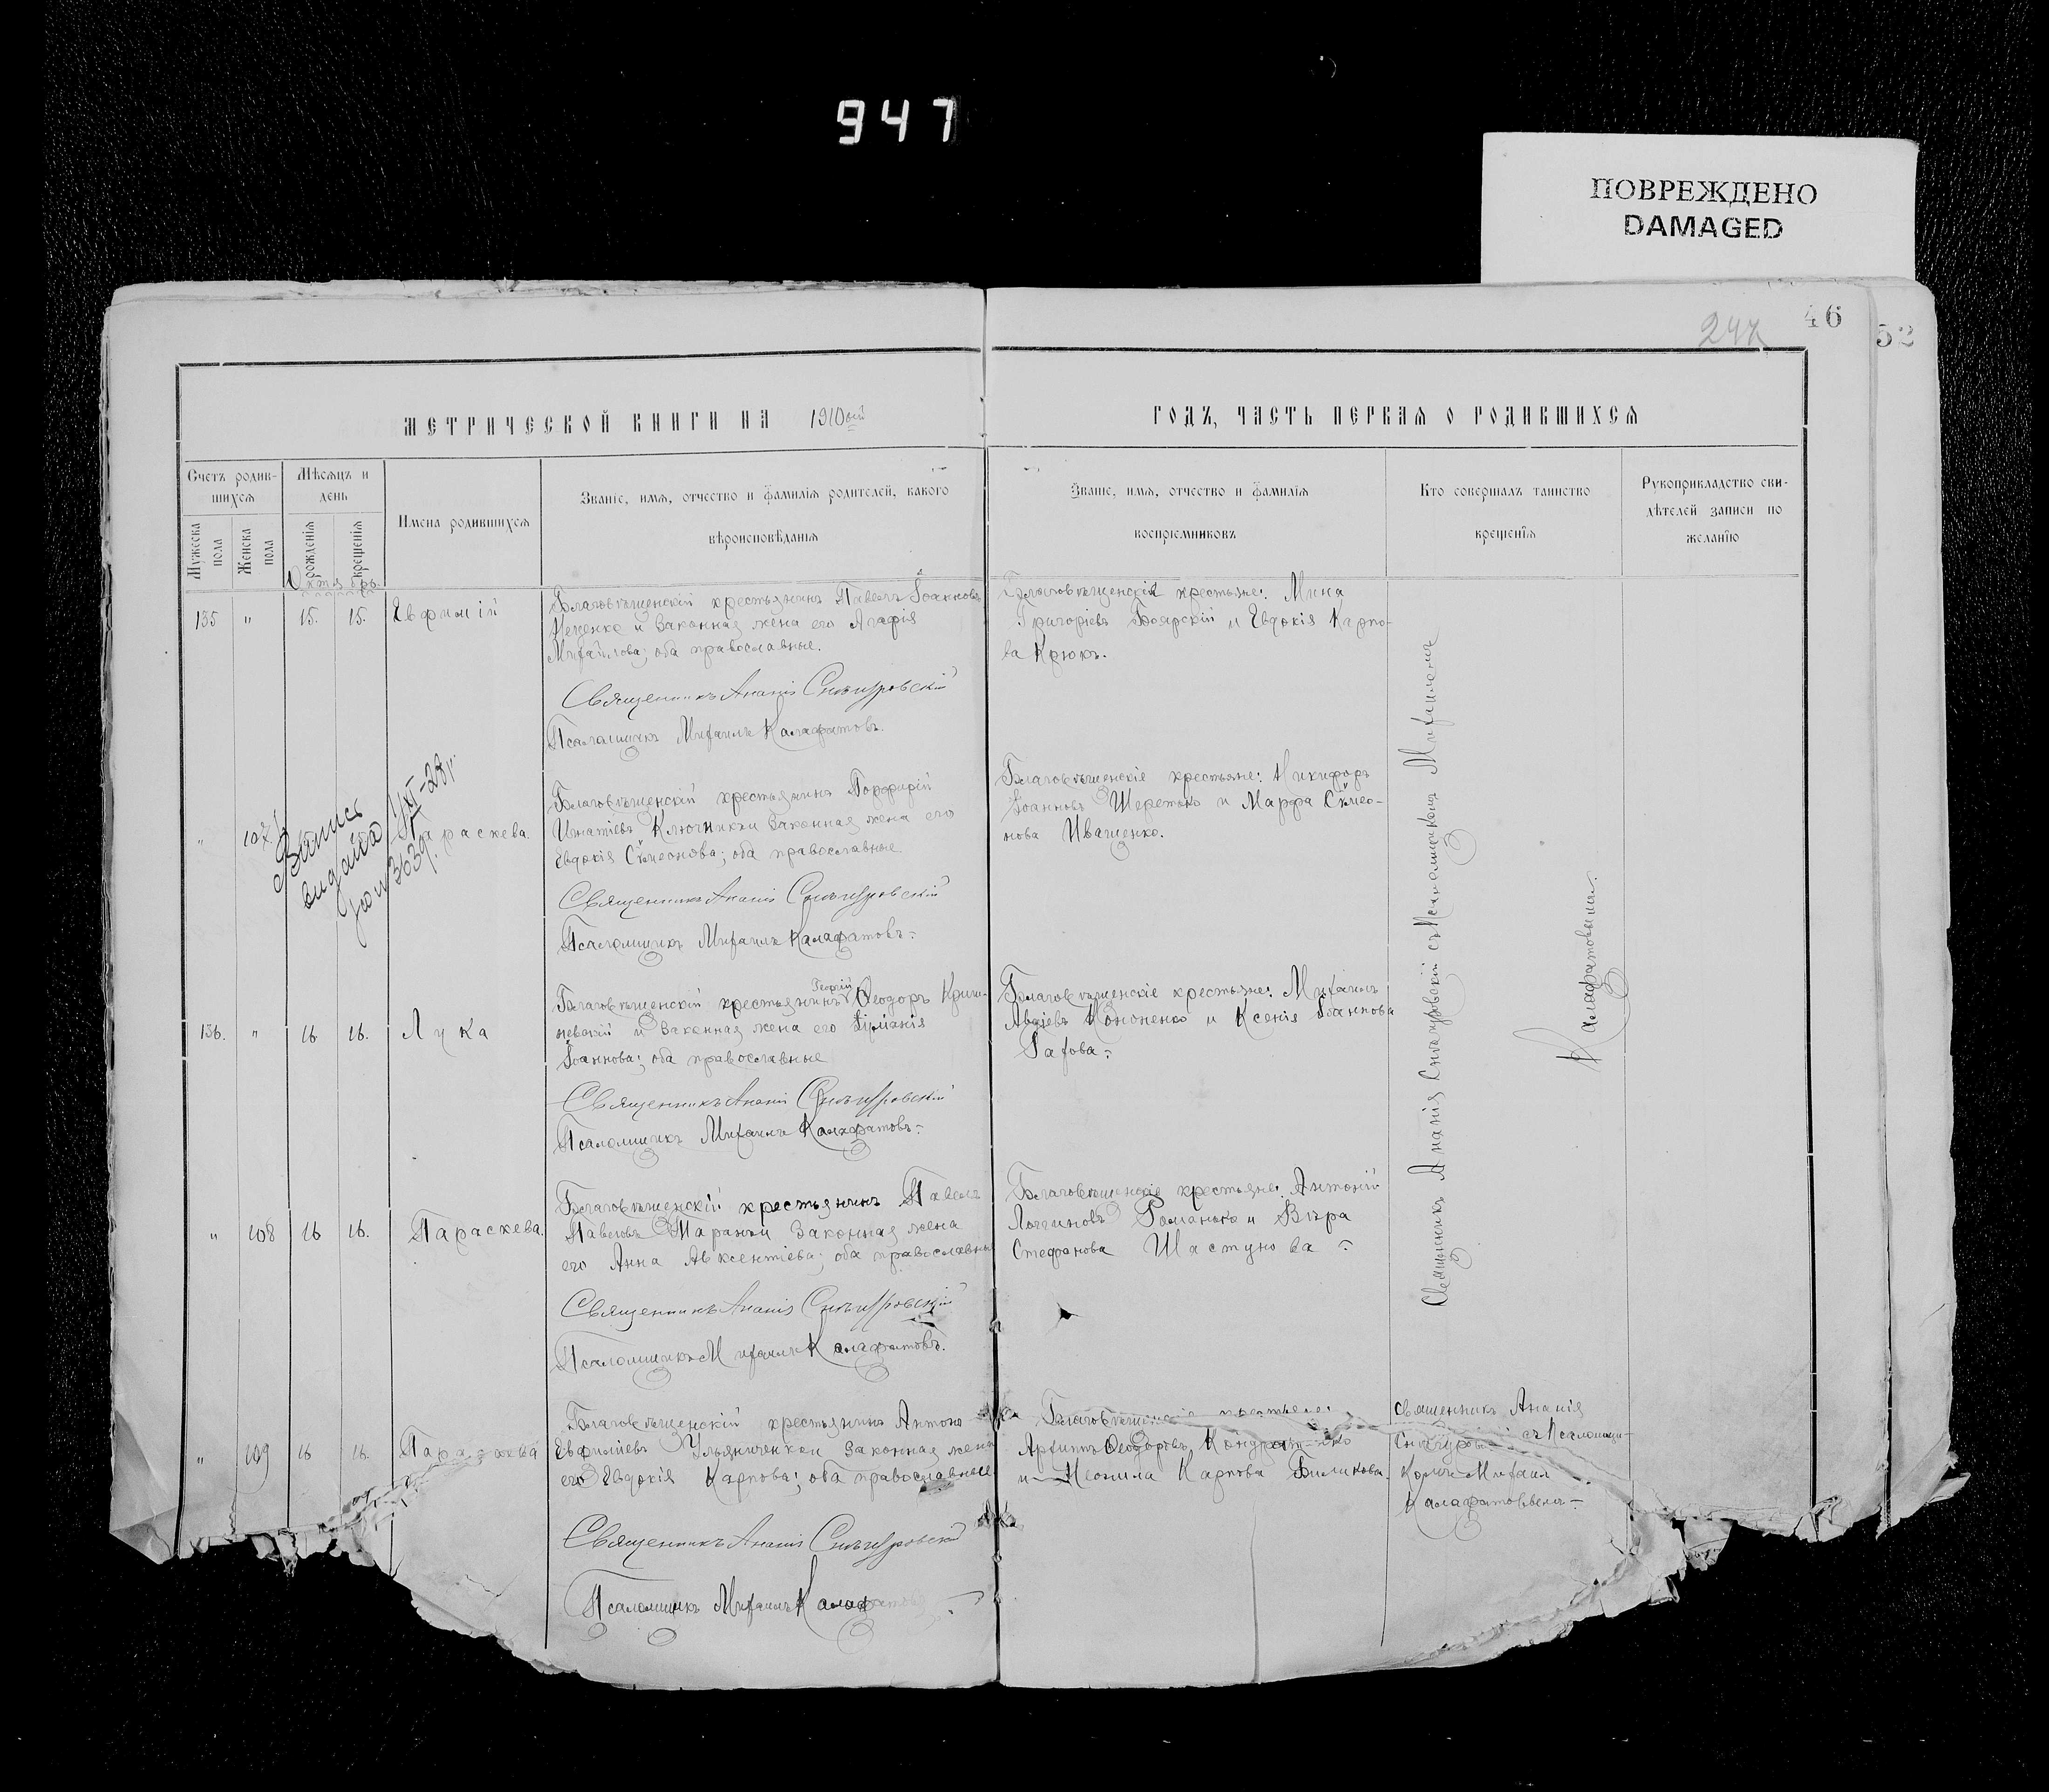 947
ПОВРЕЖДЕНО
DAMAGED
247
46
52
МЕТРИЧЕСКОЙ КНИГИ НА 1910ый
ГОДЪ, ЧАСТЬ ПЕРВАЯ О РОДИВШИХСЯ
Счетъ родив-
шихся
Мужеска пола
Женска пола
Мѣсяцъ и
день
рожденія
крещенія
Имена родившихся
Званіе, имя, отчество и фамилія родителей, какого
вѣроисповѣданія
Званіе, имя, отчество и фамилія
воспріемниковъ
Кто совершалъ таинство
крещенія
Рукоприкладство сви-
дѣтелей записи по
желанію
Октябрь.
135 " 15. 15. Евфимій
Благовѣщенскій крестьянинъ Павелъ Іоанновъ
и законная жена его Агафія
Михайлова; оба православные.
Священникъ Ананія Снѣгуровскій
Псаломщикъ Михаилъ Калафатовъ.
Благовѣщенскіе крестьяне: Мина
Григоріевъ Боярскій и Евдокія Карпо-
ва Крюкъ.
" 107. Параскева.
Запись
видана
за № 3639.
Благовѣщенскій крестьянинъ Порфирій
Игнатіевъ Ключникъ и законная жена его
Евдокія Сѵмеонова; оба православные
Священникъ Ананія Снѣгуровскій
Псаломщикъ Михаилъ Калафатовъ.
Благовѣщенскіе крестьяне: Никифоръ
Іоанновъ Шеретько и Марфа Сѵмео-
нова Иващенко.
136. " 16 16. Лука
Благовѣщенскій крестьянинъ Ѳеодоръ Криш-
невскій и законная жена его
Іоаннова; оба православные
Священникъ Ананія Снѣгуровскій
Псаломщикъ Михаилъ Калафатовъ.
Благовѣщенскіе крестьяне: Михаилъ
Авдіевъ Кононенко и Ксенія Іоаннова
Рахова.
" 108 16 16. Параскева.
Благовѣщенскій крестьянинъ Павелъ
Павловъ Таранъ и законная жена
его Анна Авксентіева; оба православные
Священникъ Ананія Снѣгуровскій
Псаломщикъ Михаилъ Калафатовъ.
Благовѣщенскіе крестьяне: Антоній
Логгиновъ Романько и Вѣра
Стефанова Шастунова
Священникъ Ананія Снѣгуровскій съ Псаломщикомъ Михаиломъ
Калафатовымъ.
" 109 16 16. Параскева
Благовѣщенскій крестьянинъ Антонъ
Евфиміевъ Ульяниченко и законная жена
его Евдокія Карпова; оба православные
Священникъ Ананія Снѣгуровскій
Псаломщикъ Михаилъ Калафатовъ
Благовѣщенскіе крестьяне:
Архиппъ Ѳеодоровъ
и Неонила Карпова Биликова.
Священникъ Ананія
Снѣгуровскій съ Псаломщи-
комъ Михаил
Калафатовымъ